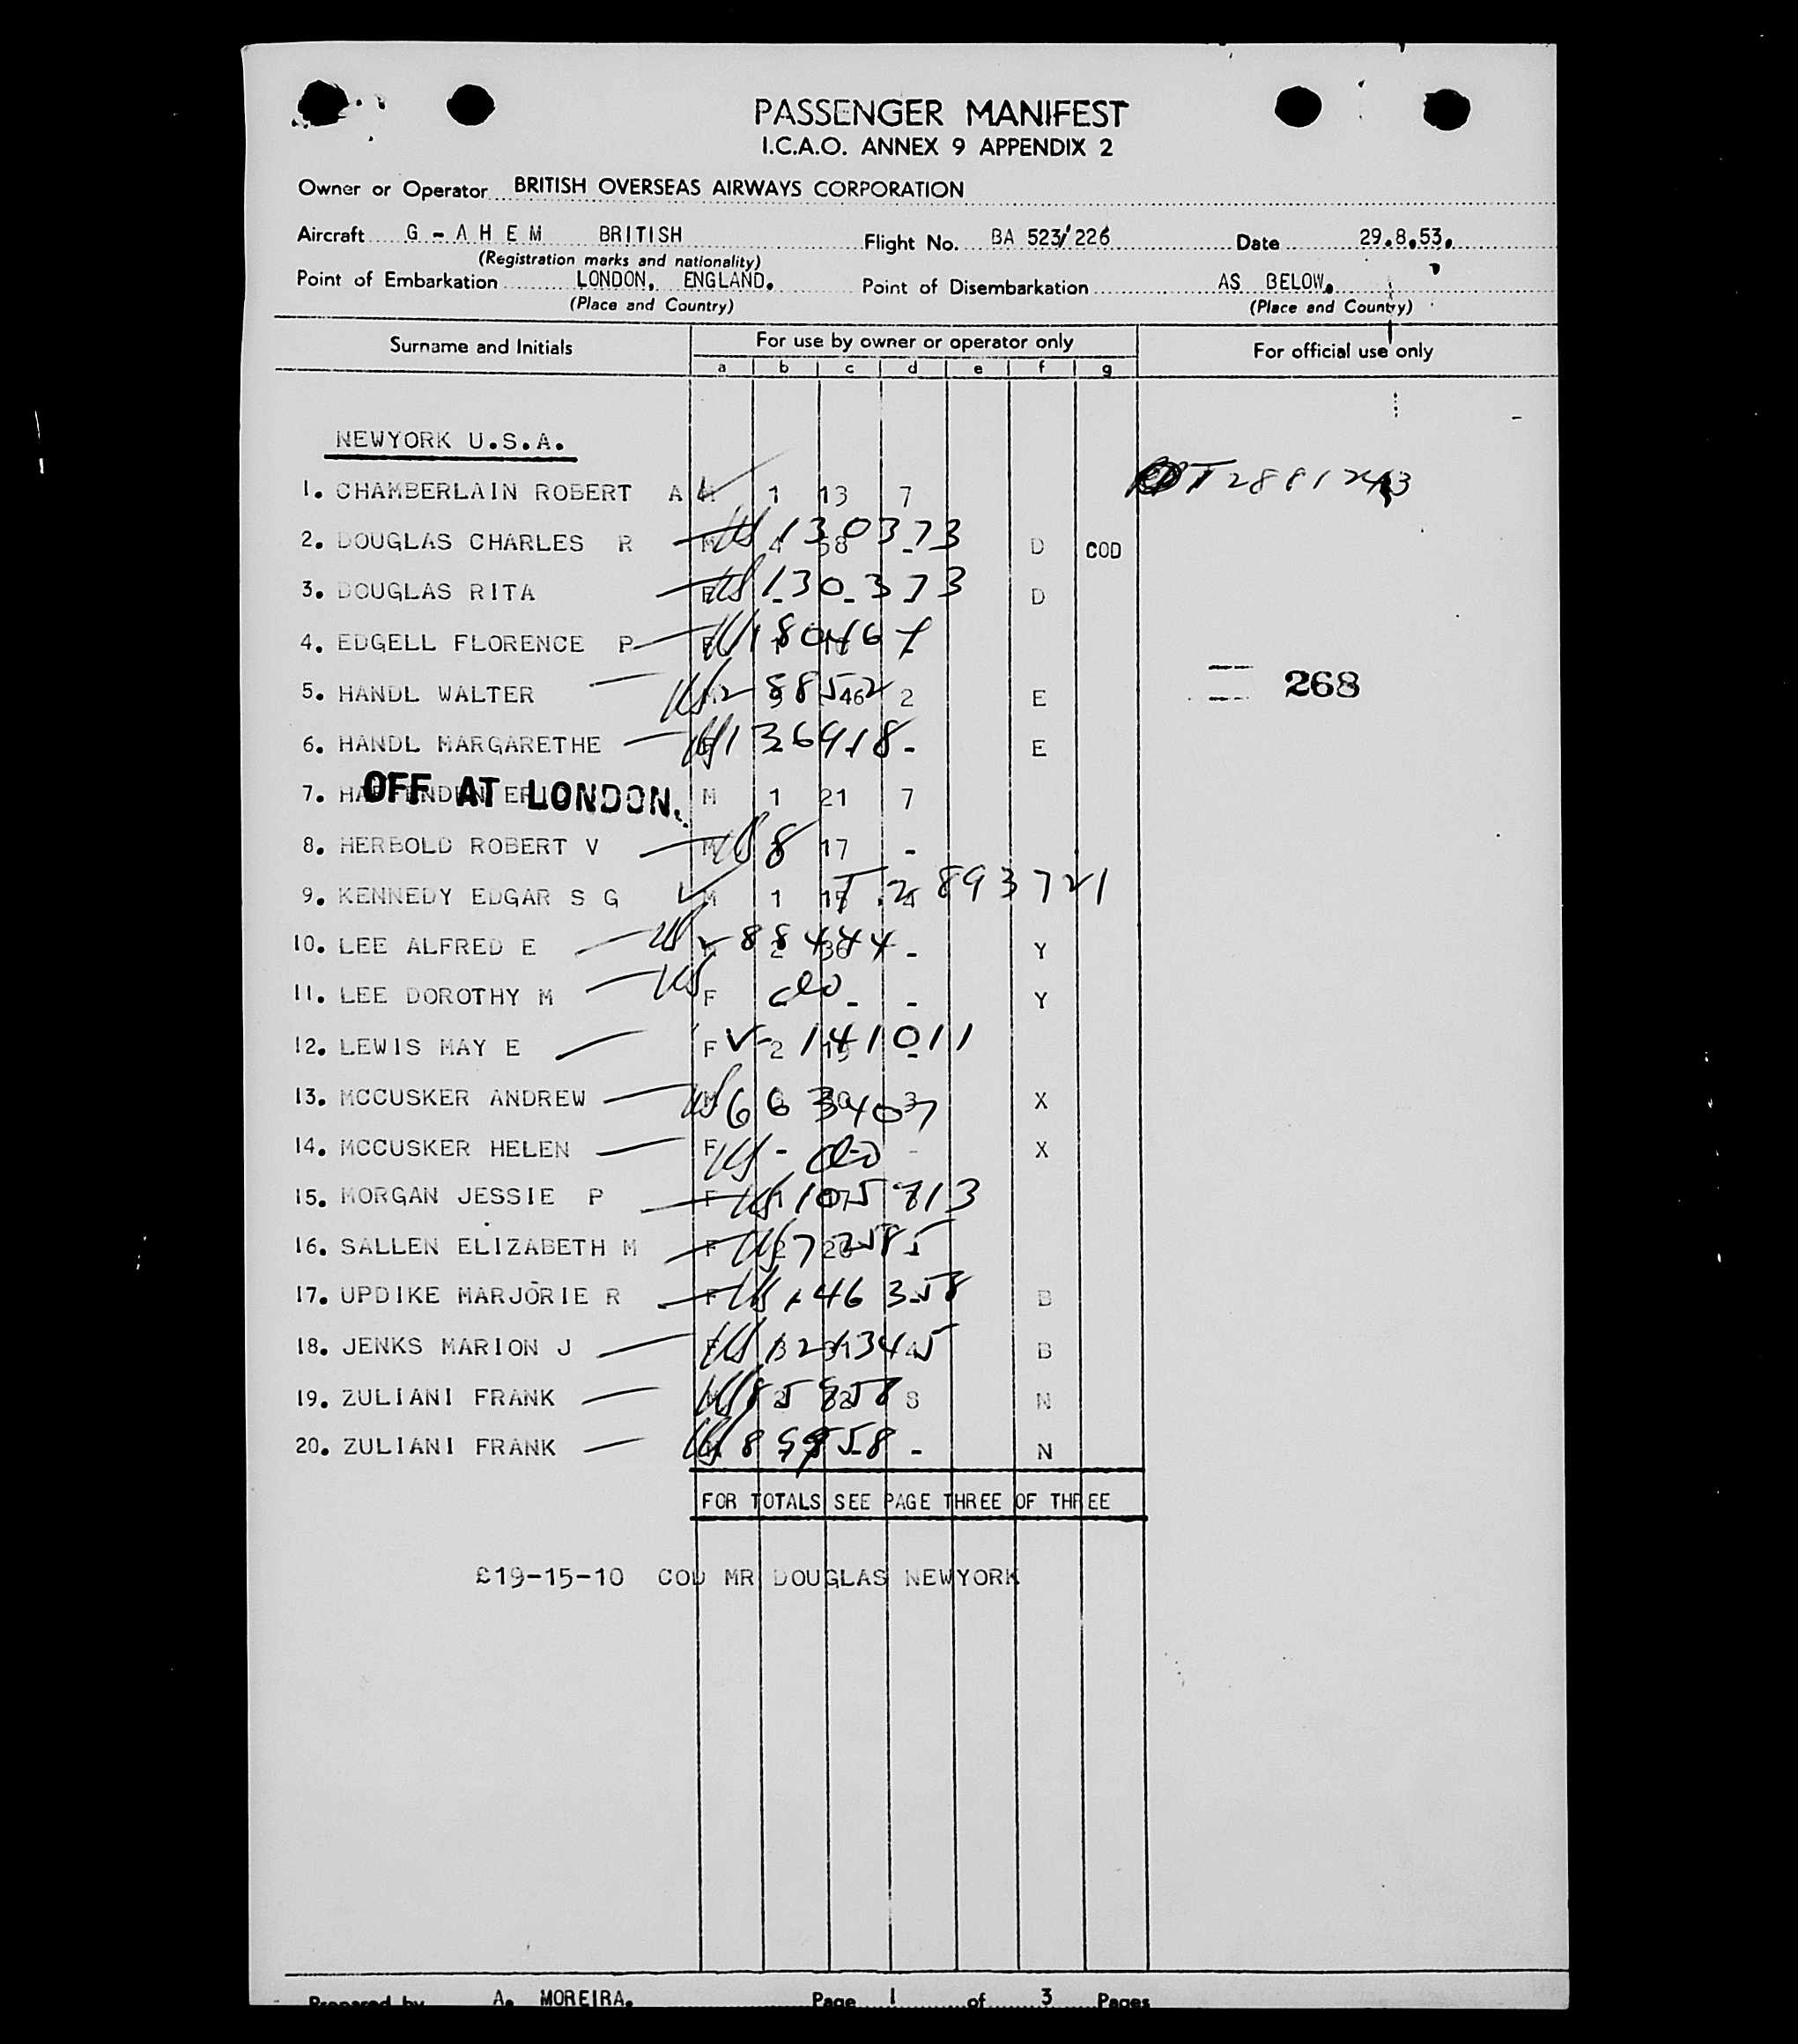 PASSENGER MANIFEST
I.C.A.O. ANNEX 9 APPENDIX 2
Owner or Operator BRITISH OVERSEAS AIRWAYS CORPORATION
Aircraft G - A H E M BRITISH Flight No. BA 523/226 Date 29.8.53.
(Registration marks and nationality)
Point of Embarkation LONDON, ENGLAND. Point of Disembarkation AS BELOW.
(Place and Country) (Place and Country)
Surname and Initials For use by owner or operator only For official use only
a b c d e f g
NEWYORK U.S.A.
1. CHAMBERLAIN ROBERT A M 1 13 7
2. DOUGLAS CHARLES R M 4 58 - 130373 D COD
3. DOUGLAS RITA F - - - 130373 D
4. EDGELL FLORENCE P
5. HANDL WALTER 288542 2 E
268
6. HANDL MARGARETHE 136918 - E
OFF AT LONDON.
7. M 1 21 7
8. HERBOLD ROBERT V M 8 17 -
9. KENNEDY EDGAR S G M 1 T 2893721
10. LEE ALFRED E 88444 - Y
11. LEE DOROTHY M F do - - Y
12. LEWIS MAY E F V-2141011
13. MCCUSKER ANDREW M 663407 3 X
14. MCCUSKER HELEN F - do - X
15. MORGAN JESSIE P F 105713
16. SALLEN ELIZABETH M F 72585
17. UPDIKE MARJORIE R F 146358 B
18. JENKS MARION J F 4 B
19. ZULIANI FRANK M 85858 8 N
20. ZULIANI FRANK - N
FOR TOTALS SEE PAGE THREE OF THREE
£19-15-10 COD MR DOUGLAS NEWYORK
Prepared by A. MOREIRA. Page 1 of 3 Pages